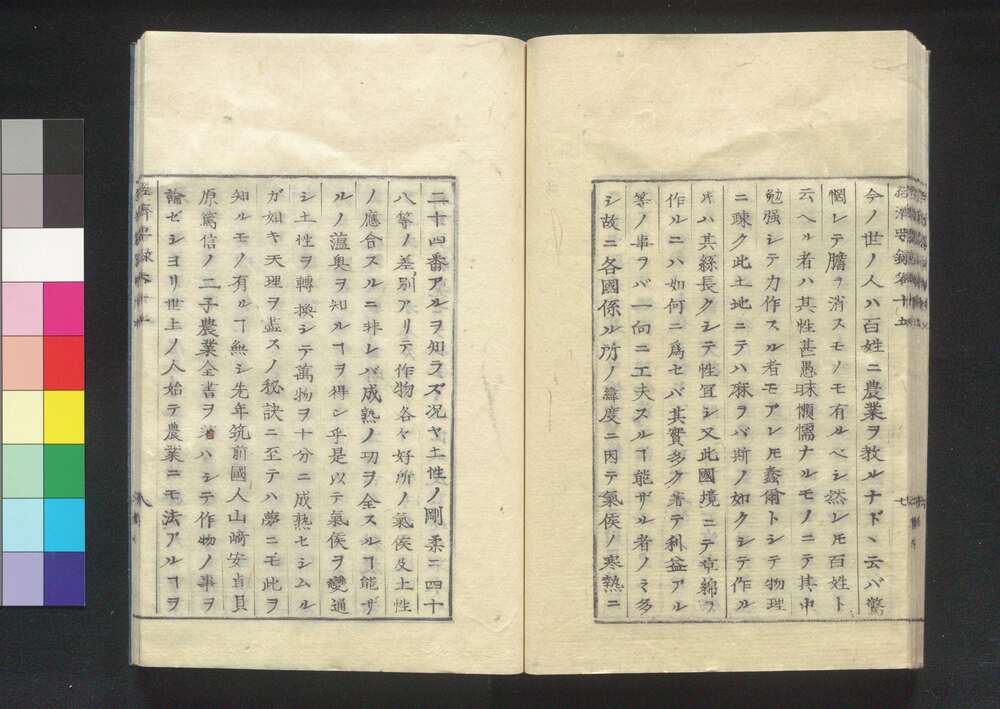 今ノ世ノ人ハ百姓ニ農業ヲ教ルナドヽ云バ驚
惘レテ膽ヲ消スモノモ有ルベシ然レ𪜈百姓ト
云ヘル者ハ其性甚愚昧懶懦ナルモノニテ其中
勉强シテ力作スル者モアレ𪜈蠢爾トシテ物理
ニ踈ク此土地ニテハ麻ヲバ斯ノ如クシテ作ル
𪜈ハ其絲長クシテ性宜シ又此國境ニテ草綿ヲ
作ルニハ如何ニ爲セバ其實多ク著テ利益アル
等ノ事ヲバ一向ニ工夫スルヿ能ザル者ノミ多
シ故ニ各國係ル所ノ緯度ニ因テ氣侯ノ寒熱ニ
二十四番アルヲ知ラズ况ヤ土性ノ剛柔ニ四十
八等ノ差別アリテ作物各々好所ノ氣侯及土性
ノ應合スルニ非レバ成熟ノ功ヲ全スルヿ能ザ
ルノ薀奥ヲ知ルヿヲ得シ乎是以テ氣侯ヲ變通
シ土性ヲ轉換シテ萬物ヲ十分ニ成熟セシムル
ガ如キ天理ヲ盡スノ秘訣ニ至テハ夢ニモ此ヲ
知ルモノ有ルヿ無シ先年筑前國人山﨑安貞貝
原篤信ノ二子農業全書ヲ著ハシテ作物ノ事ヲ
論ゼショリ世上ノ人始テ農業ニモ法アルヿヲ